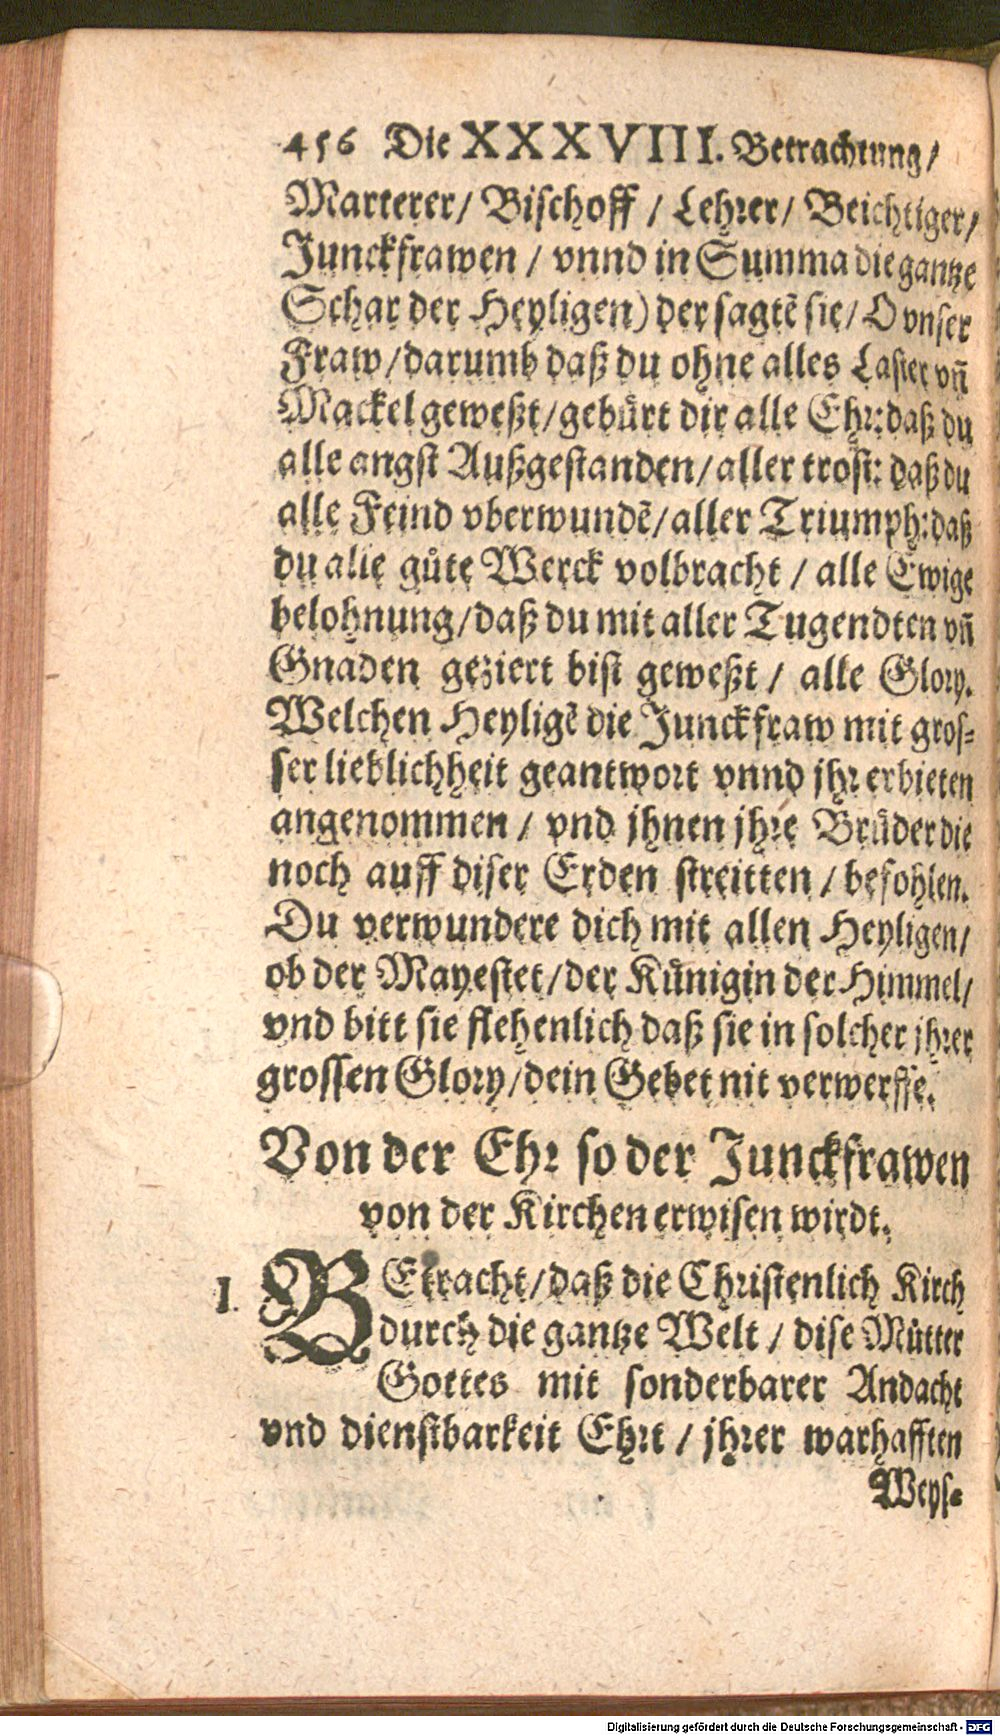 456 Die XXXVIII. Betrachtung/
Marterer/ Bischoff / Lehrer/ Beichtiger/
Junckfrawen / vnnd in Summa die gantze
Schar der Heyligen) der sagtẽ sie/ O vnser
Fraw/darumb daß du ohne alles Laster vñ
Mackel geweßt/gebuͤrt dir alle Ehr: daß du
alle angst Außgestanden/aller trost: daß du
alle Feind vberwundẽ/aller Triumph: daß
du alle guͦte Werck volbracht / alle Ewige
belohnung/daß du mit aller Tugendten vñ
Gnaden geziert bist geweßt / alle Glory.
Welchen Heyligẽ die Junckfraw mit gros-
ser lieblichheit geantwort vnnd jhr erbieten
angenommen / vnd jhnen jhre Bruͤder die
noch auff diser Erden streitten / befohlen.
Du verwundere dich mit allen Heyligen/
ob der Mayestet/der Kuͤnigin der Himmel/
vnd bitt sie flehenlich daß sie in solcher jhrer
grossen Glory/dein Gebet nit verwerffe.
Von der Ehr so der Junckfrawen
von der Kirchen erwisen wirdt.
I. BEtracht/daß die Christenlich Kirch
durch die gantze Welt / dise Muͦtter
Gottes mit sonderbarer Andacht
vnd dienstbarkeit Ehrt / jhrer warhafften
Weys-
Digitalisierung gefördert durch die Deutsche Forschungsgemeinschaft - DFG